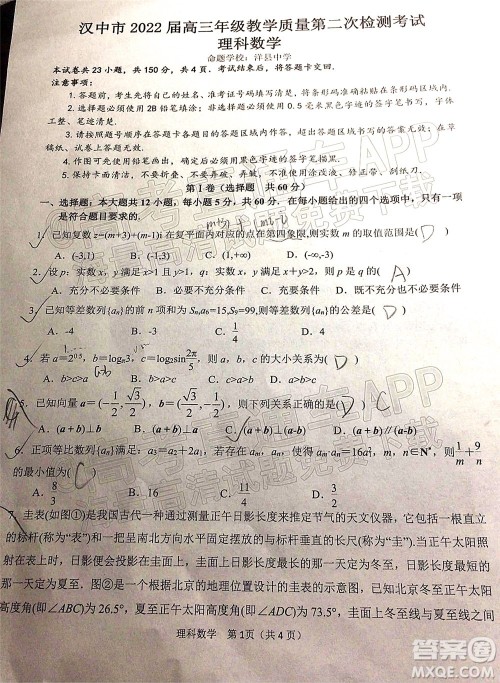 汉中市 2022 届高三年级教学质量第二次检测考试
理科数学
命题学校：洋县中学
本试卷共 23 小题，共 150 分，共 4 页．考试结束后，将答题卡交回．
注意事项：
1. 答题前，
2. 选择题必须使用 2B 铅笔填涂；非选择题必须使用 0.5 毫米黑色字迹的签字笔书写，
工整、笔迹清楚．
3. 请按照题号顺序在答题卡各题目的答题区域内作答，超出答题区域书写的答案无效；在草
稿纸、试卷上答题无效．
4. 作图可先使用铅笔画出，确定后必须用黑色字迹的签字笔描黑．
5. 保持卡面清洁，不要折叠，不要弄破、弄皱，不准使用涂改液、修正带、刮纸刀．
第 I 卷（选择题 共 60 分）
一、选择题：本大题共 12 小题，每小题 5 分，共 60 分．在每小题给出的四个选项中，只有一项
是符合题目要求的．
1. 复数 z=(m+3)+(m-1)i 在复平面内对应的点在第四象限，则实数 m 的取值范围是( )
A．(-3,1) B．(-1,3) C．(1,+∞) D．(-∞,-3)
2. 设 p：实数 x，y 满足 x>1 且 y>1，q：实数 x，y 满足 x+y>2，则 p 是 q 的( A )
A．充分不必要条件 B．必要不充分条件 C．充要条件 D．既不充分也不必要条件
3. 已知等差数列{aₙ}的前 n 项和为 Sₙ,a₆=15,S₉=99,则等差数列{aₙ}的公差是( D )
A．-4 B．-3 C．1/4 D．4
4. 若 a=2^0.5，b=logπ3，c=log₂sin(2π/5)，则 a，b，c 的大小关系为( D )
A．b>c>a B．b>a>c C．c>a>b D．a>b>c
5. 已知向量 a=(-1/2, √3/2)，b=(√3/2, -1/2)，则下列关系正确的是( D )
A．(a+b)⊥b B．(a+b)⊥a C．(a+b)⊥(a-b) D．(a+b)∥(a-b)
6. 正项等比数列{aₙ}满足：a₃=a₂+2a₁，若存在 aₘ，aₙ，使得 aₘ·aₙ=16a₁²，m，n∈N*，则 1/m+9/n
的最小值为( C )
A．8/3 B．16 C．11/4 D．3/2
7. 圭表(如图①)是我国古代一种通过测量正午日影长度来推定节气的天文仪器，它包括一根直立
的标杆(称为“表”)和一把呈南北方向水平固定摆放的与标杆垂直的长尺(称为“圭”)．当正午太阳照
射在表上时，日影便会投影在圭面上，圭面上日影长度最长的那一天定为冬至，日影长度最短的
那一天定为夏至．图②是一个根据北京的地理位置设计的圭表的示意图，已知北京冬至正午太阳
高度角(即∠ABC)为 26.5°，夏至正午太阳高度角(即∠ADC)为 73.5°，圭面上冬至线与夏至线之间
理科数学 第 1 页（共 4 页）
答案圈
MXQE.COM